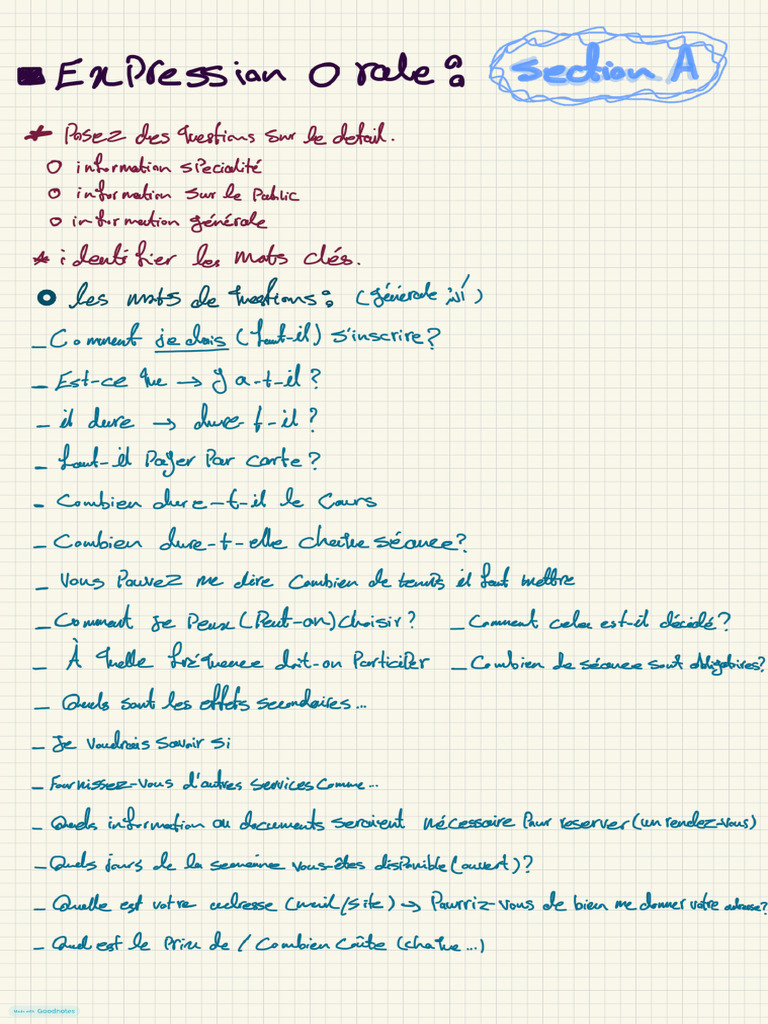 Expression orale: section A
* Posez des questions sur le detail.
o information spécialité
o information sur le Public
o information générale
* identifier les mots clés.
o les mots de questions: (générale)
_ Comment je dois (faut-il) s'inscrire?
_ Est-ce que → y a-t-il?
_ il dure → dure-t-il?
_ faut-il Payer Par carte?
_ Combien dure-t-il le Cours
_ Combien dure-t-elle chaque séance?
_ Vous Pouvez me dire Combien de temps il faut mettre
_ Comment je Peux (Peut-on) choisir? _ Comment cela est-il décidé?
_ À quelle fréquence doit-on Participer _ Combien de séance sont obligatoires?
_ Quels sont les effets secondaires...
_ Je voudrais savoir si
_ Fournissez-vous d'autres services comme...
_ Quels information ou documents seraient nécessaire Pour reserver (un rendez-vous)
_ Quels jours de la semaine vous-êtes disponible (ouvert)?
_ Quelle est votre adresse (mail/site) → Pourriz-vous de bien me donner votre adresse?
_ Quel est le Prix de / Combien Coûte (chaque...)
Made with Goodnotes